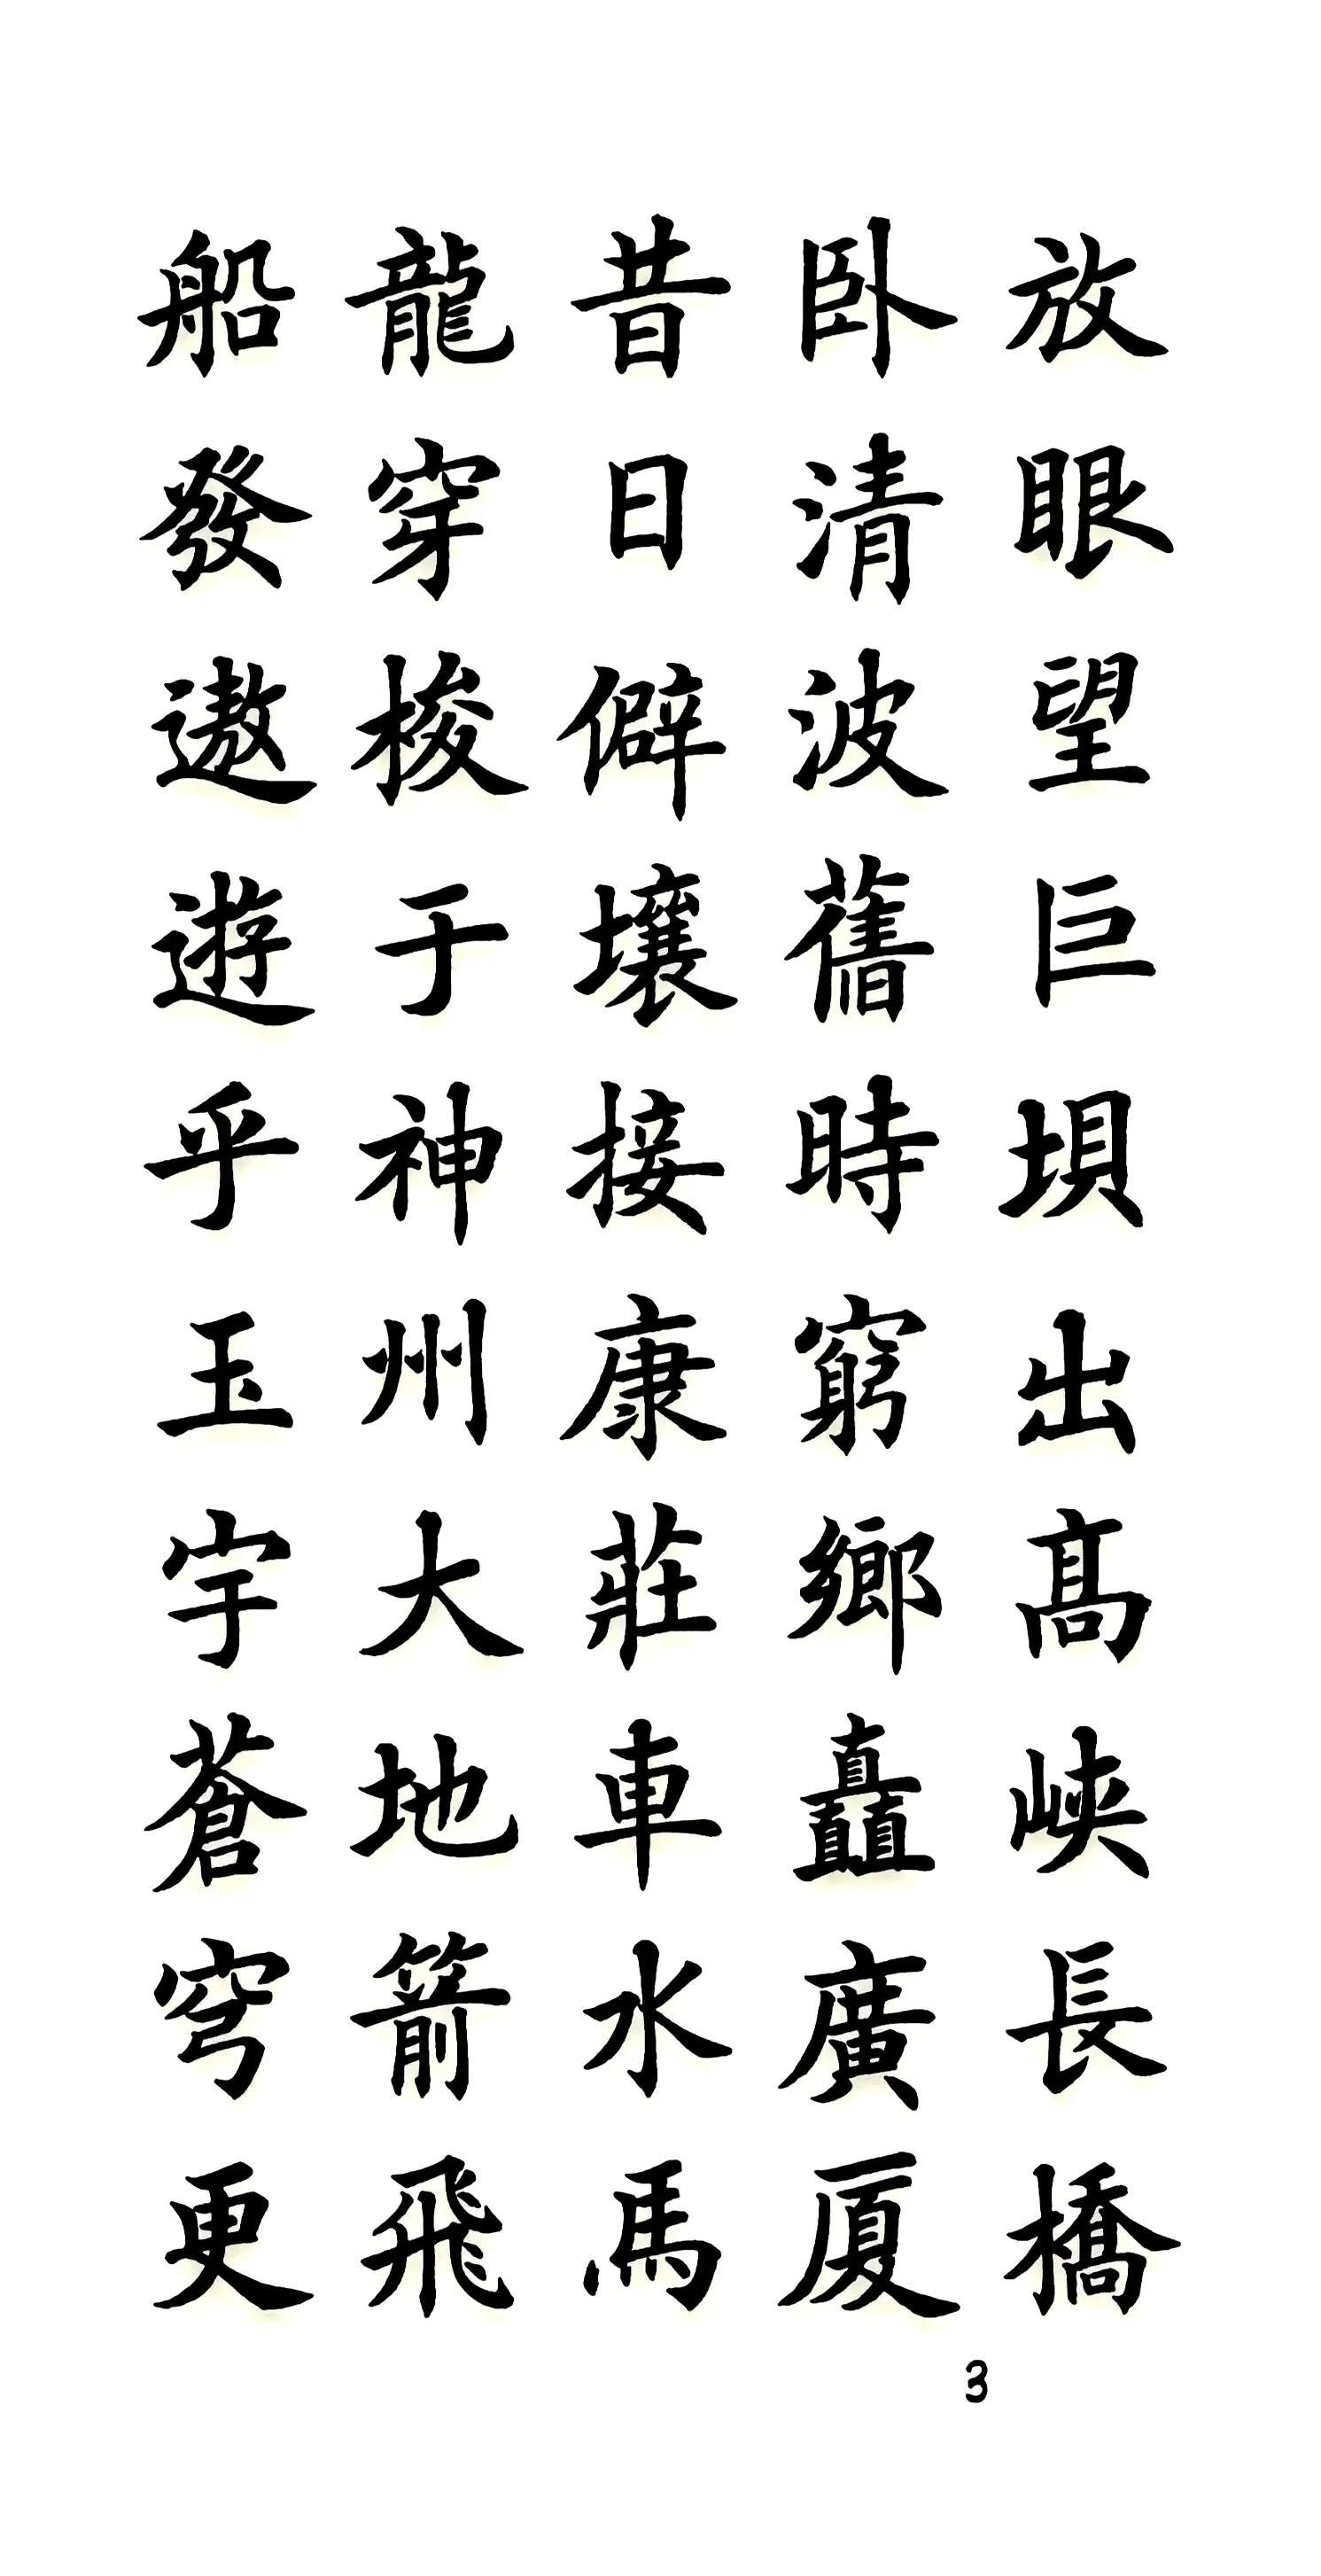 放眼望巨垻出高峽長橋
卧清波舊時窮鄉矗廣厦
昔日僻壤接康莊車水馬
龍穿梭于神州大地箭飛
船發遨遊乎玉宇蒼穹更
3